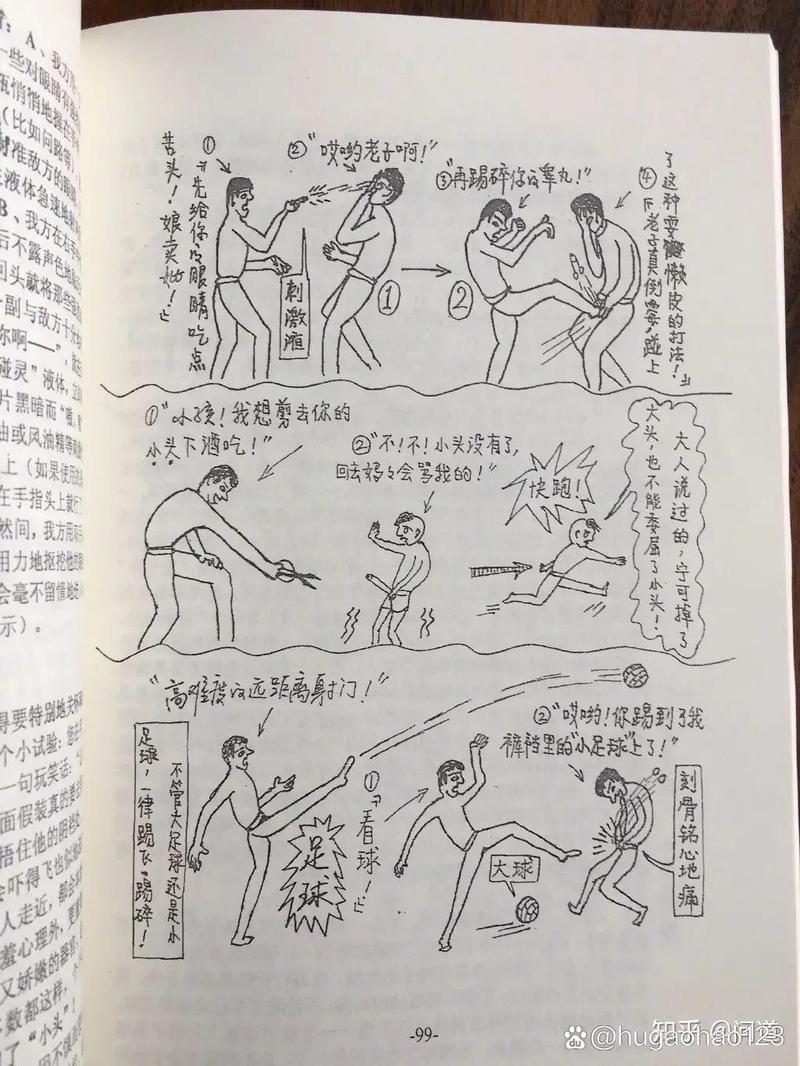 言：A、我方
一些对眼睛有
瓶悄悄地握在
（比如问路等）
对准敌方的眼
液体急速地
B、我方在右手
后不露声色地
回头就将那些
一副与敌方十分
你啊——”，
碰灵”液体，立
片黑暗而“嗷
油或风油精等
上（如果使用
在手指头上就行了
然间，我方用
用力地抠挖他的
会毫不留情地
示）。
得要特别地关
个小试验：
一句玩笑话：“
面假装真的要
捂住他的阴裆
会吓得飞也似地
人走近，都会
羞心理外，更
又娇嫩的器官
数都这样，个
了“小头”！
①“先给你的眼睛吃点
苦头！娘卖
②“哎哟老子啊！”
刺激液
①
②
③“再踢碎你的睾丸！”
④
“老子真倒霉，碰上
了这种耍懒皮的打法！”
①“小孩！我想剪去你的
小头下酒吃！”
②“不！不！小头没有了，
回去妈妈会骂我的！”
快跑！
大人说过的，宁可掉了
大头，也不能委屈了小头！
“高难度的远距离射门！”
不管大足球还是小
足球，一律踢飞、踢碎！
足球
①“看球！”
大球
②“哎哟！你踢到了我
裤裆里的“小足球”上了！”
刻骨铭心地痛
-99-
知乎 @问道
Bai du @hugaohao123